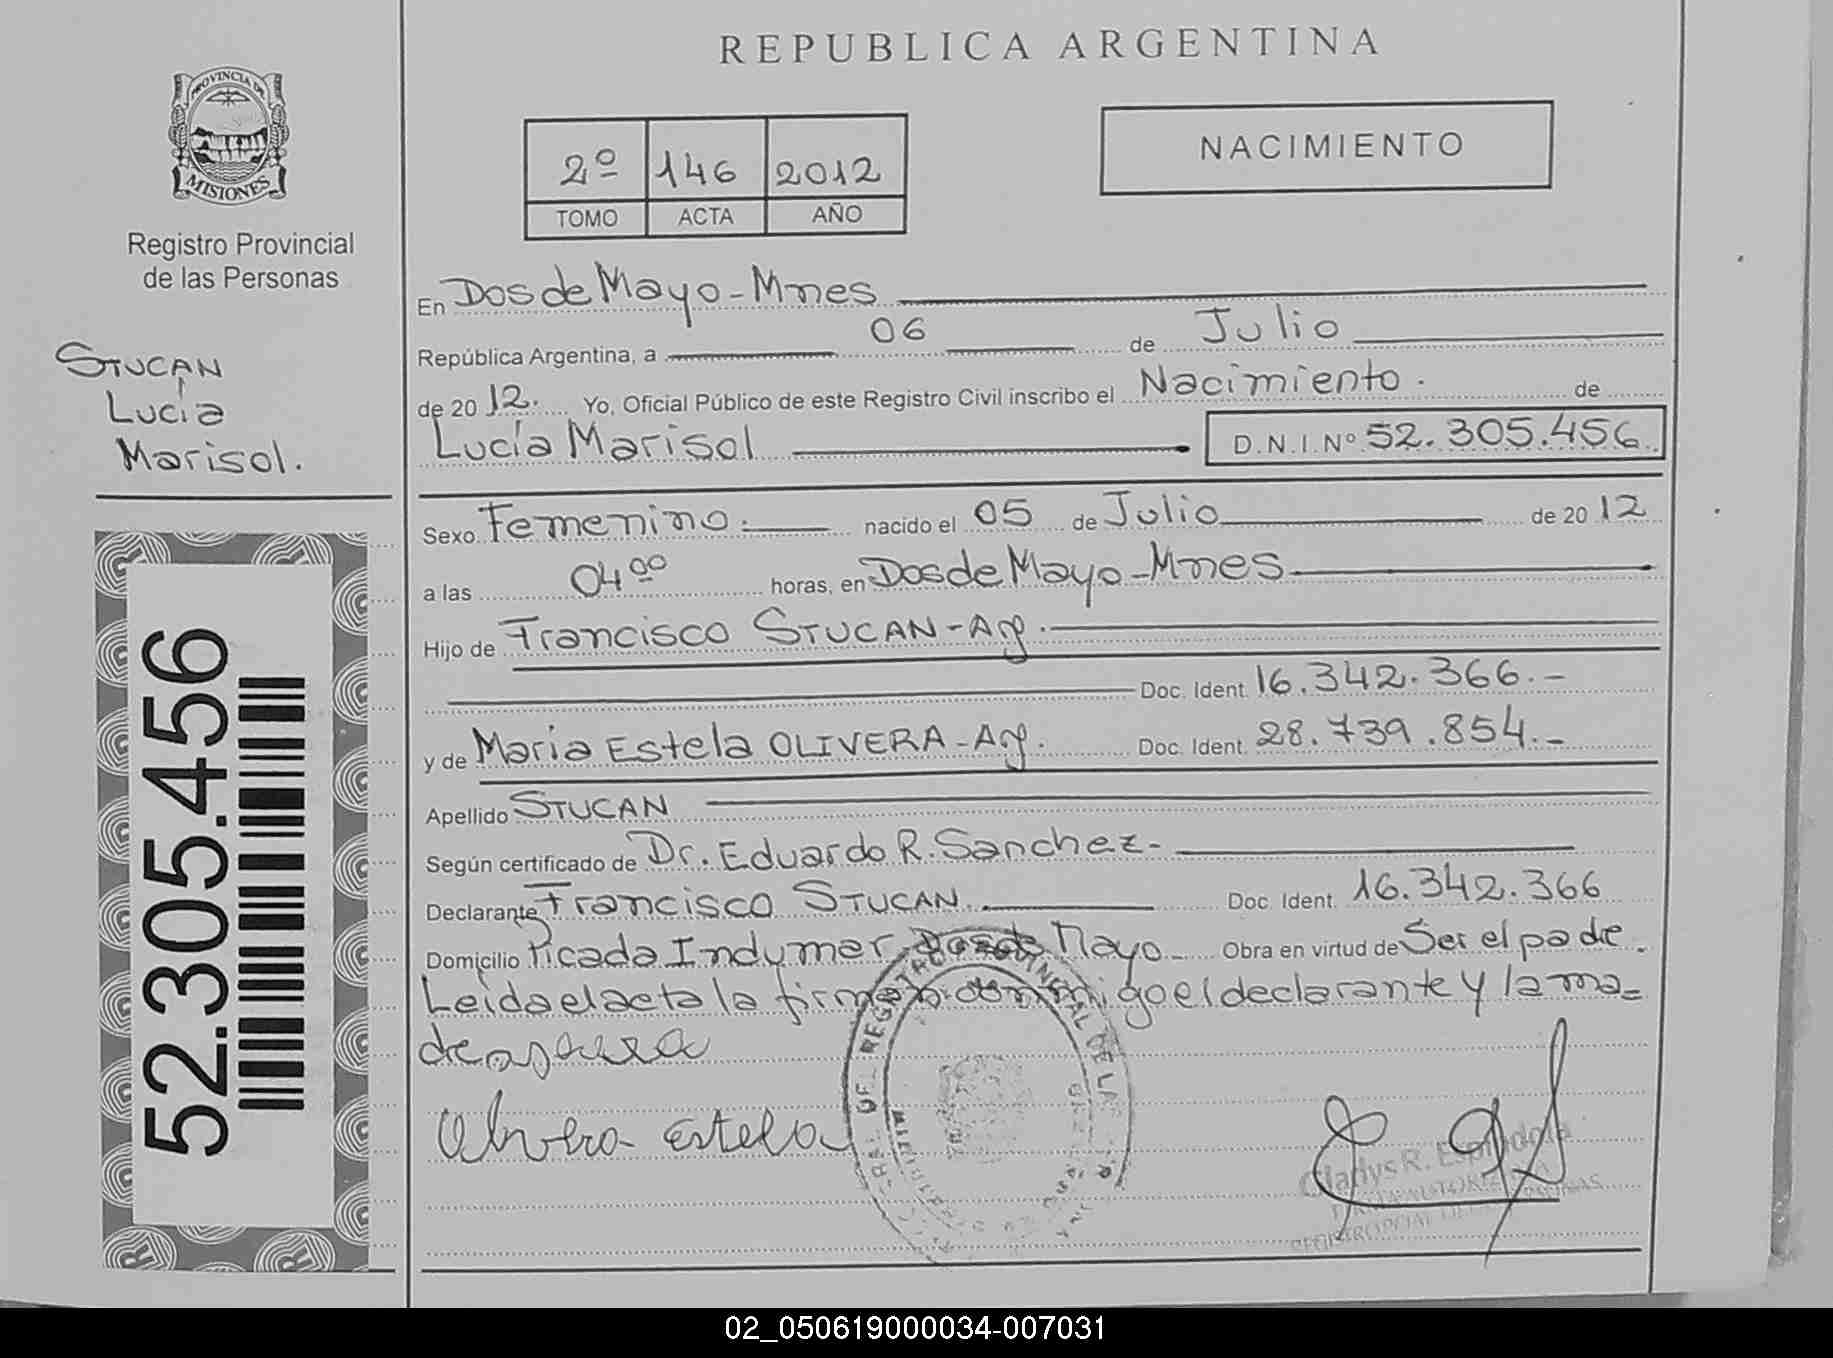 REPUBLICA ARGENTINA
PROVINCIA DE
MISIONES
Registro Provincial
de las Personas
2º 146 2012
TOMO ACTA AÑO
NACIMIENTO
STUCAN
Lucía
Marisol.
52.305.456
En Dos de Mayo - Mnes
República Argentina, a 06 de Julio
de 20 12. Yo, Oficial Público de este Registro Civil inscribo el Nacimiento. de
Lucía Marisol D.N.I.Nº 52.305.456
Sexo Femenino. nacido el 05 de Julio de 20 12
a las 04 00 horas, en Dos de Mayo - Mnes
Hijo de Francisco STUCAN - Arg.
Doc. Ident. 16.342.366.-
y de Maria Estela OLIVERA - Arg. Doc. Ident. 28.739.854.-
Apellido STUCAN
Según certificado de Dr. Eduardo R. Sanchez-
Declarante Francisco STUCAN. Doc. Ident. 16.342.366
Domicilio Picada Indumar Dos de Mayo Obra en virtud de Ser el padre.
Leída el acta la firman conmigo el declarante y la ma=
dre
Olivera Estela
REGISTRO PROVINCIAL DE LAS
Gladys R. Espindola
02_050619000034-007031